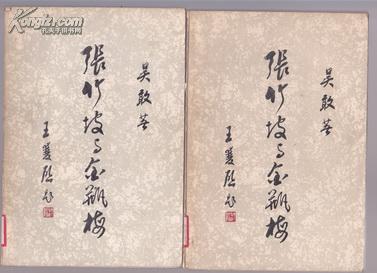 Kongfz.com
孔夫子旧书网
吴敢著
張竹坡与金瓶梅
王
吴敢著
張竹坡与金瓶梅
王